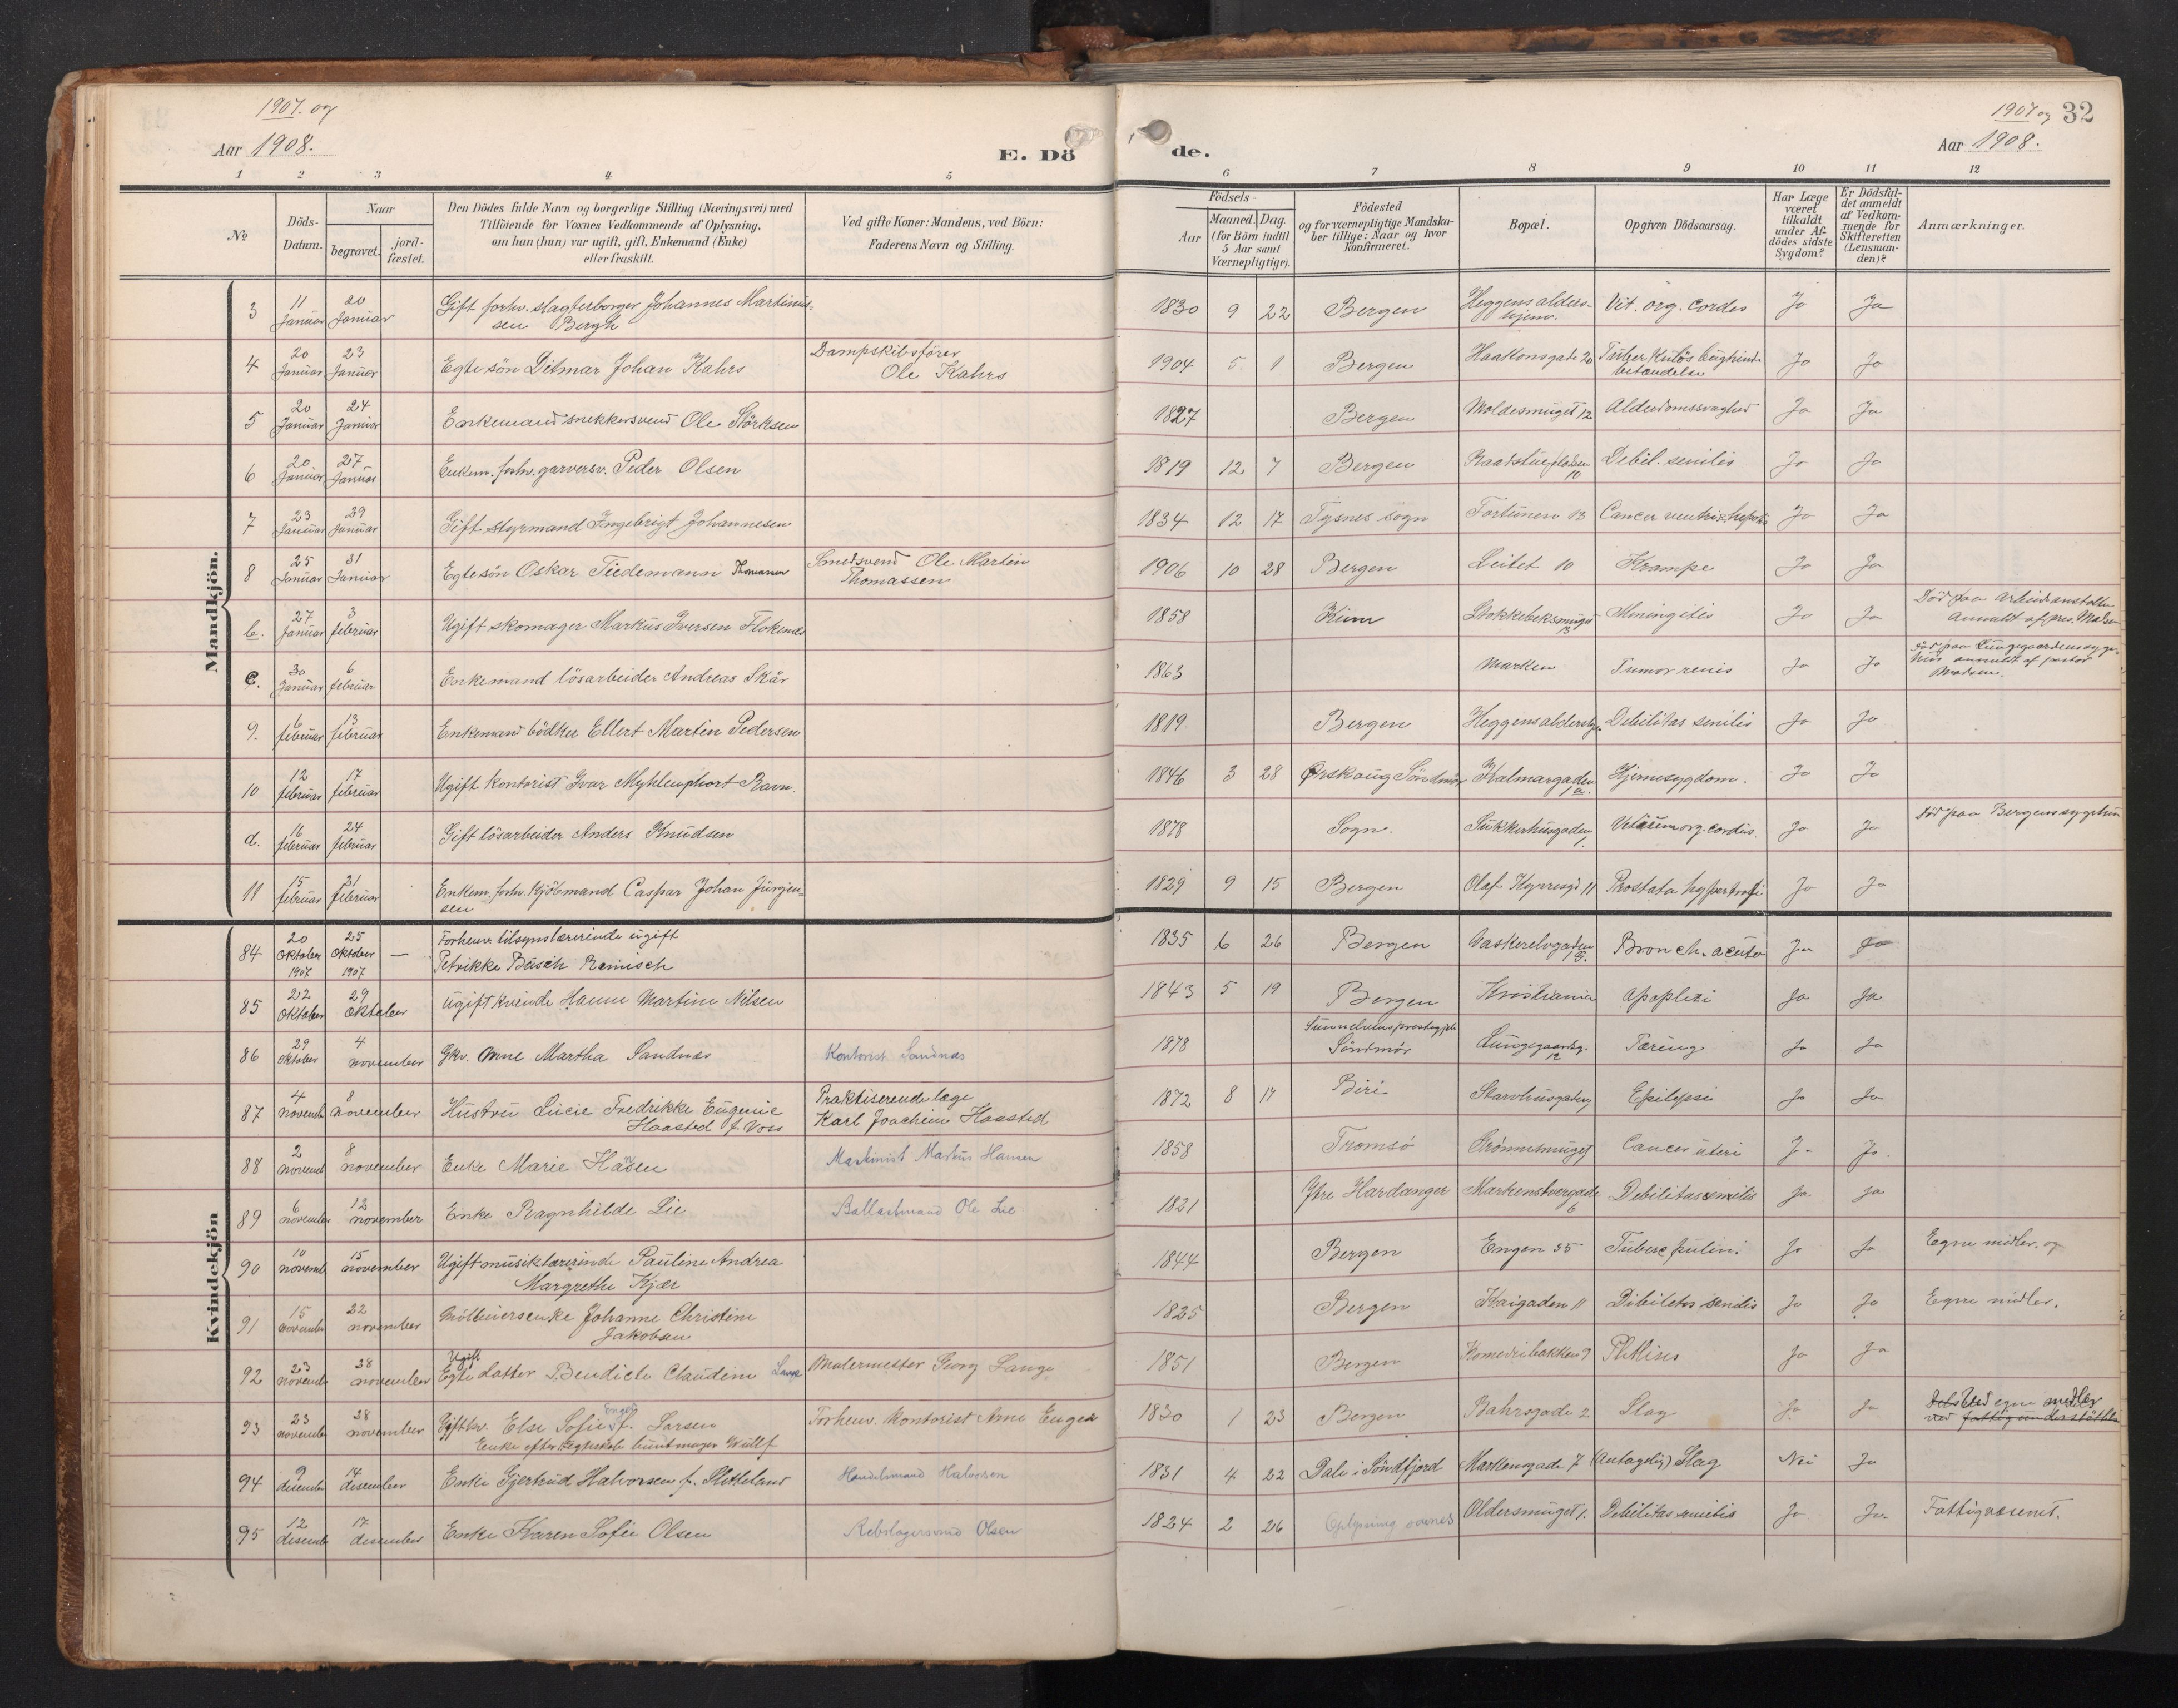 1907. og
Aar 1908.
E. Dö
de.
1907 og
Aar 1908.
32
1 2 3 4 5 6 7 8 9 10 11 12
No
Döds-
Datum.
Naar
begravet.
jord-
fæstet.
Den Dödes fulde Navn og borgerlige Stilling (Næringsvei) med
Tilföiende for Voxnes Vedkommende af Oplysning,
om han (hun) var ugift, gift, Enkemand (Enke)
eller fraskilt.
Ved gifte Koner: Mandens, ved Börn:
Faderens Navn og Stilling.
Födsels-
Aar
Maaned. Dag.
(for Börn indtil
5 Aar samt
Værnepligtige).
Födested
og for værnepligtige Mandska-
ber tillige: Naar og hvor
konfirmeret.
Bopæl.
Opgiven Dödsaarsag.
Har Læge
været
tilkaldt
under Af-
dödes sidste
Sygdom?
Er Dödsfal-
det anmeldt
af Vedkom-
mende for
Skifteretten
(Lensman-
den)?
Anmærkninger.
Mandkjön.
3 11 Januar 20 Januar Gift forhv. slagterborger Johannes Martinus-
sen Bergh 1830 9 22 Bergen Heggens alders-
hjem. Vit. org. cordis Ja Ja
4 20 Januar 23 Januar Egte sön Ditmar Johan Kahrs Dampskibsförer
Ole Kahrs 1904 5. 1 Bergen Haakonsgade 20 Tuberkulös bughinde-
betændelse Ja Ja
5 20 Januar 24 Januar Enkemand snekkersvend Ole Störksen 1827 Bergen Moldesmuget 12 Alderdomssvaghed Ja Ja
6 20 Januar 27 Januar Enkem. forhv. garversv. Peder Olsen 1819 12 7 Bergen Raadstuepladsen
10 Debil. senilis Ja Ja
7 23 Januar 29 Januar Gift styrmand Ingebrigt Johannesen 1834 12 17 Tysnes sogn Fortunen 13 Cancer ventri. Ja Ja
8 25 Januar 31 Januar Egtesön Oskar Tiedemann Thomassen Smedsvend Ole Martin
Thomassen 1906 10 28 Bergen Leitet 10 Krampe Ja Ja
b. 27 Januar 3 februar Ugift skomager Markus Iversen Flokenes 1858 Kinn Stokkebeksmuget
13 Meningitis Ja Ja Död paa Arbeidsanstalten
Anmeldt af pres. Madsen
c. 30 Januar 6 februar Enkemand lösarbeider Andreas Skår 1863 Marken Tumor renis Ja Ja Död paa Lungegaardens syge-
hus anmeldt af pastor
Madsen.
9. 6 februar 13 februar Enkemand bödker Ellert Martin Pedersen 1819 Bergen Heggens aldershj. Debilitas senilis Ja Ja
10 12 februar 17 februar Ugift kontorist Ivar Myhlenphort Ravn. 1846 3 28 Ørskoug Söndmör Kalmargaden
1 a. Hjernesygdom. Ja Ja
d. 16 februar 24 februar Gift lösarbeider Anders Knudsen 1878 Sogn. Sukkerhusgaden
1. Vitium org. cordis. Ja Ja Död paa Bergens sygehus
11 15 februar 21 februar Enkem. forhv. Kjöbmand Caspar Johan Jürgen-
sen 1829 9 15 Bergen Olaf Kyrresgd. 11 Prostata hypertrofi Ja Ja
Kvindekjön
84 20 Oktober 1907 25 Oktober 1907 — Forhenv. tilsynslærerinde ugift
Petrikke Büsch Reinisch 1835 6 26 Bergen Vaskerelvgaden Bronch. acuta Ja Ja
85 22 Oktober 29 Oktober Ugift kvinde Hanne Martine Nilsen 1843 5 19 Bergen Kristiania Apoplexi Ja Ja
86 29 Oktober 4 november Gkv. Anne Martha Sandnæs Kontorist Sandnæs 1878 Sunnelvens prestegjeld
Söndmör Lungegaardsg.
12 Tæring Ja Ja
87 4 novemb 8 november Hustru Lucie Fredrikke Eugenie
Haasted f. Voss Praktiserende læge
Karl Joachim Haasted 1872 8 17 Biri Starvhusgaden Epilepsi Ja Ja
88 2 novemb 8 november Enke Marie Hansen Maskinist Markus Hansen 1858 Tromsö Grönnesmuget Cancer uteri J- Ja.
89 6 novembe 12 november Enke Ragnhilde Lie Ballastmand Ole Lie 1821 Ytre Hardanger Markenstvergade
6 Debilitas senilis Ja Ja
90 10 novemb 15 november Ugift musiklærerinde Pauline Andrea
Margrethe Kjær 1844 Bergen Engen 35 Tuberc. pulm. Ja Ja Egne midler. og
91 15 novembe 22 november Möllersenke Johanne Christine
Jakobsen 1825 Bergen Kaigaden 11 Debilitas senilis Ja Ja Egne midler.
92 23 novemb 28 november Ugift
Egte datter Bendicte Claudine Lange Malermester Georg Lange 1851 Bergen Komediebakken 9 Phthisis Ja Ja
93 23 novembe 28 november Giftkv. Else Sofie Engen f. Larsen
Enke efter buntmager Wulff Forhenv. Kontorist Arne Engen 1830 1 23 Bergen Bahrsgade 2 Slag Ja Ja Ved egne midler
ved fattigunderstöttelse
94 9 disembe 14 disember Enke Gjertrud Halvorsen f. Sletteland Handelsmand Halvorsen 1831 4 22 Dale i Söndfjord Markensgade 7 (Antagelig) Slag Nei Ja
95 12 disemb 17 disember Enke Karen Sofie Olsen Rebslagersvend Olsen 1824 2 26 Oplysning savnes Oldersmuget 1. Debilitas senilis Ja Ja. Fattigvæsenet.